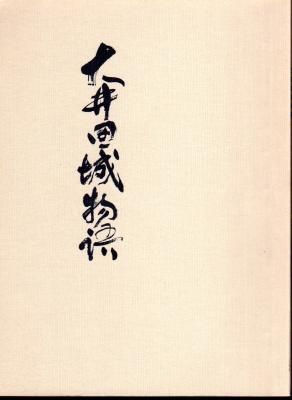 大井田城物語